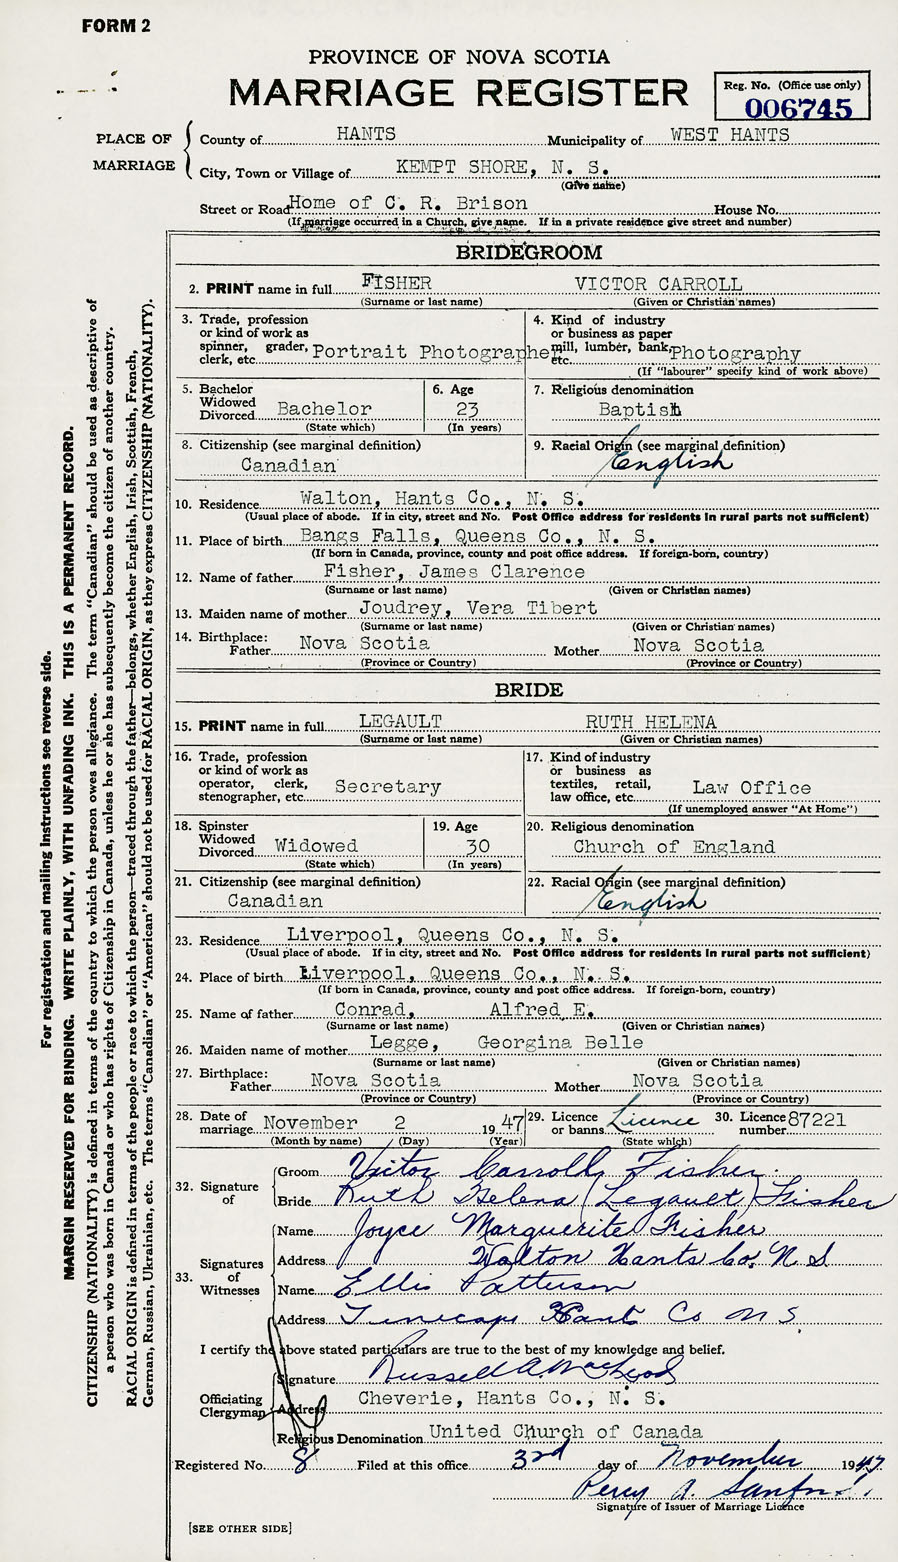 FORM 2
PROVINCE OF NOVA SCOTIA
MARRIAGE REGISTER
Reg. No. (Office use only)
006745
PLACE OF MARRIAGE
County of HANTS Municipality of WEST HANTS
City, Town or Village of KEMPT SHORE, N. S.
(Give name)
Street or Road Home of C. R. Brison House No.
(If marriage occurred in a Church, give name. If in a private residence give street and number)
BRIDEGROOM
2. PRINT name in full FISHER VICTOR CARROLL
(Surname or last name) (Given or Christian names)
3. Trade, profession or kind of work as spinner, grader, clerk, etc. Portrait Photographer
4. Kind of industry or business as paper mill, lumber, bank, etc. Photography
(If "labourer" specify kind of work above)
5. Bachelor Widowed Divorced Bachelor
(State which)
6. Age 23
(In years)
7. Religious denomination
Baptist
8. Citizenship (see marginal definition)
Canadian
9. Racial Origin (see marginal definition)
English
10. Residence Walton, Hants Co., N. S.
(Usual place of abode. If in city, street and No. Post Office address for residents in rural parts not sufficient)
11. Place of birth Bangs Falls, Queens Co., N. S.
(If born in Canada, province, county and post office address. If foreign-born, country)
12. Name of father Fisher, James Clarence
(Surname or last name) (Given or Christian names)
13. Maiden name of mother Joudrey, Vera Tibert
(Surname or last name) (Given or Christian names)
14. Birthplace: Father Nova Scotia Mother Nova Scotia
(Province or Country) (Province or Country)
BRIDE
15. PRINT name in full LEGAULT RUTH HELENA
(Surname or last name) (Given or Christian names)
16. Trade, profession or kind of work as operator, clerk, stenographer, etc. Secretary
17. Kind of industry or business as textiles, retail, law office, etc. Law Office
(If unemployed answer "At Home")
18. Spinster Widowed Divorced Widowed
(State which)
19. Age 30
(In years)
20. Religious denomination
Church of England
21. Citizenship (see marginal definition)
Canadian
22. Racial Origin (see marginal definition)
English
23. Residence Liverpool, Queens Co., N. S.
(Usual place of abode. If in city, street and No. Post Office address for residents in rural parts not sufficient)
24. Place of birth Liverpool, Queens Co., N. S.
(If born in Canada, province, county and post office address. If foreign-born, country)
25. Name of father Conrad, Alfred E.
(Surname or last name) (Given or Christian names)
26. Maiden name of mother Legge, Georgina Belle
(Surname or last name) (Given or Christian names)
27. Birthplace: Father Nova Scotia Mother Nova Scotia
(Province or Country) (Province or Country)
28. Date of marriage November 2 1947 29. Licence or banns Licence 30. Licence number 87221
(Month by name) (Day) (Year) (State which)
32. Signature of
Groom Victor Carroll Fisher.
Bride Ruth Helena (Legault) Fisher
33. Signatures of Witnesses
Name Joyce Marguerite Fisher
Address Walton Hants Co. N. S
Name Ellis Patterson
Address Hants Co N S
I certify the above stated particulars are true to the best of my knowledge and belief.
Officiating Clergyman
Signature Russell A. MacLeod
Address Cheverie, Hants Co., N. S.
Religious Denomination United Church of Canada
Registered No. 8 Filed at this office 3rd day of November 1947
Percy A. Sanford
Signature of Issuer of Marriage Licence
[SEE OTHER SIDE]
For registration and mailing instructions see reverse side.
MARGIN RESERVED FOR BINDING. WRITE PLAINLY, WITH UNFADING INK. THIS IS A PERMANENT RECORD.
CITIZENSHIP (NATIONALITY) is defined in terms of the country to which the person owes allegiance. The term "Canadian" should be used as descriptive of
a person who was born in Canada or who has rights of Citizenship in Canada, unless he or she has subsequently become the citizen of another country.
RACIAL ORIGIN is defined in terms of the people or race to which the person—traced through the father—belongs, whether English, Irish, Scottish, French,
German, Russian, Ukrainian, etc. The terms "Canadian" or "American" should not be used for RACIAL ORIGIN, as they express CITIZENSHIP (NATIONALITY).